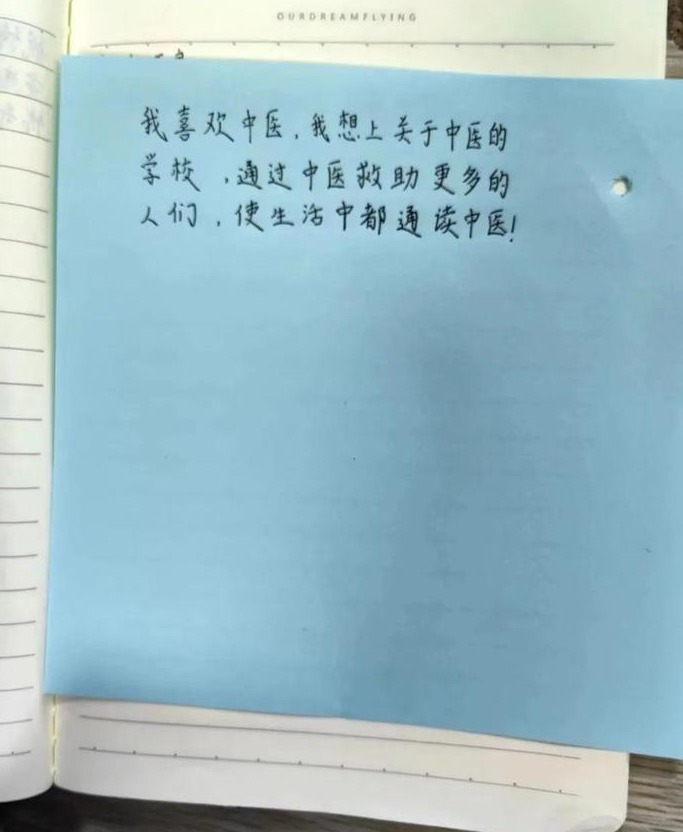 OURDREAMFLYING
我喜欢中医，我想上关于中医的
学校，通过中医救助更多的
人们，使生活中都通读中医！